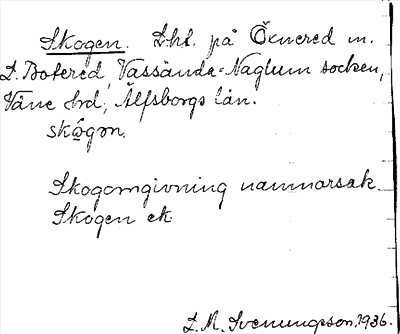 Skogen. Lht. på Öxnered m.
L. Botered, Vassända-Naglum socken,
Väne hd, Älfsborgs län.
skǫ̂gən.
Skogomgivning namnorsak.
Skogen ek
L. M. Svenungsson, 1936.